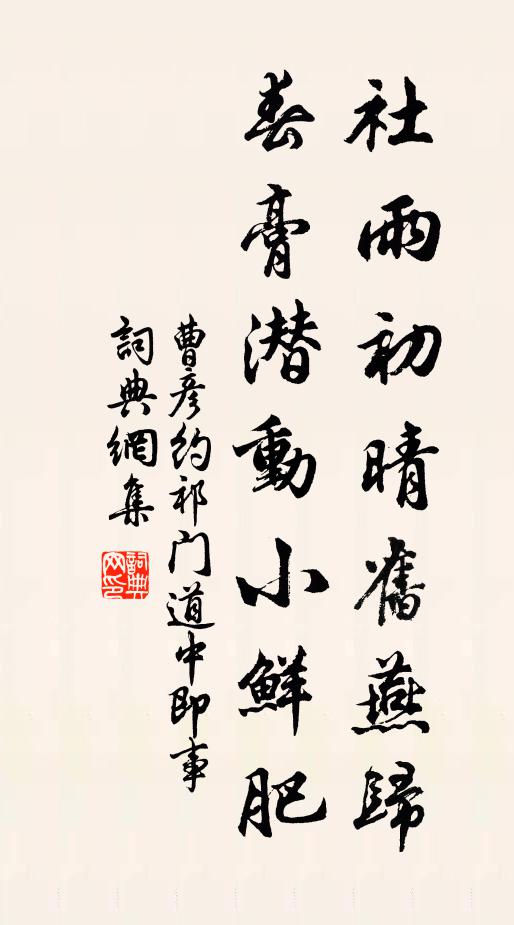 社雨初晴舊燕歸
春膏潜動小鮮肥
曹彦約祁门道中即事
詞典網集
詞典网印